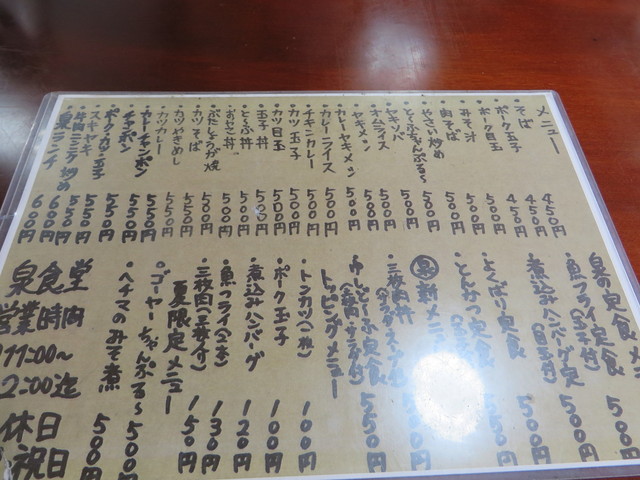 メニュー
そば 450円
ポーク玉子 450円
ポーク目玉 450円
みそ汁 500円
肉そば 500円
やさい炒め 500円
とうふちゃんぷる〜 500円
ヤキソバ 500円
オムライス 500円
ヤキメシ 500円
カレーヤキメシ 500円
カレーライス 500円
チキンカレー 500円
カツ玉子 500円
カツ目玉 500円
玉子丼 500円
とうふ丼 500円
おやこ丼 500円
ぶたしょうが焼 500円
カツそば 550円
カツやきめし 550円
カツカレー 550円
カレーチャンポン 550円
チャンポン 550円
ポーク・カツ・玉子 550円
スキヤキ 550円
牛肉ニンニク炒め 600円
泉ランチ 600円
泉の定食 500円
魚フライ定食(玉子付) 500円
煮込みハンバーグ定食(目玉付) 500円
よくばり定食 550円
とんかつ定食
泉 新メニュー
三枚肉丼
ゆしどーふ定食 550円
トッピングメニュー
トンカツ(一枚) 100円
ポーク玉子 100円
煮込みハンバーグ 120円
魚フライ 130円
三枚肉 150円
夏限定メニュー
ゴーヤーちゃんぷる〜 500円
ヘチマのみそ煮 500円
泉食堂
営業時間
11:00〜
2:00迄
休日
祝日